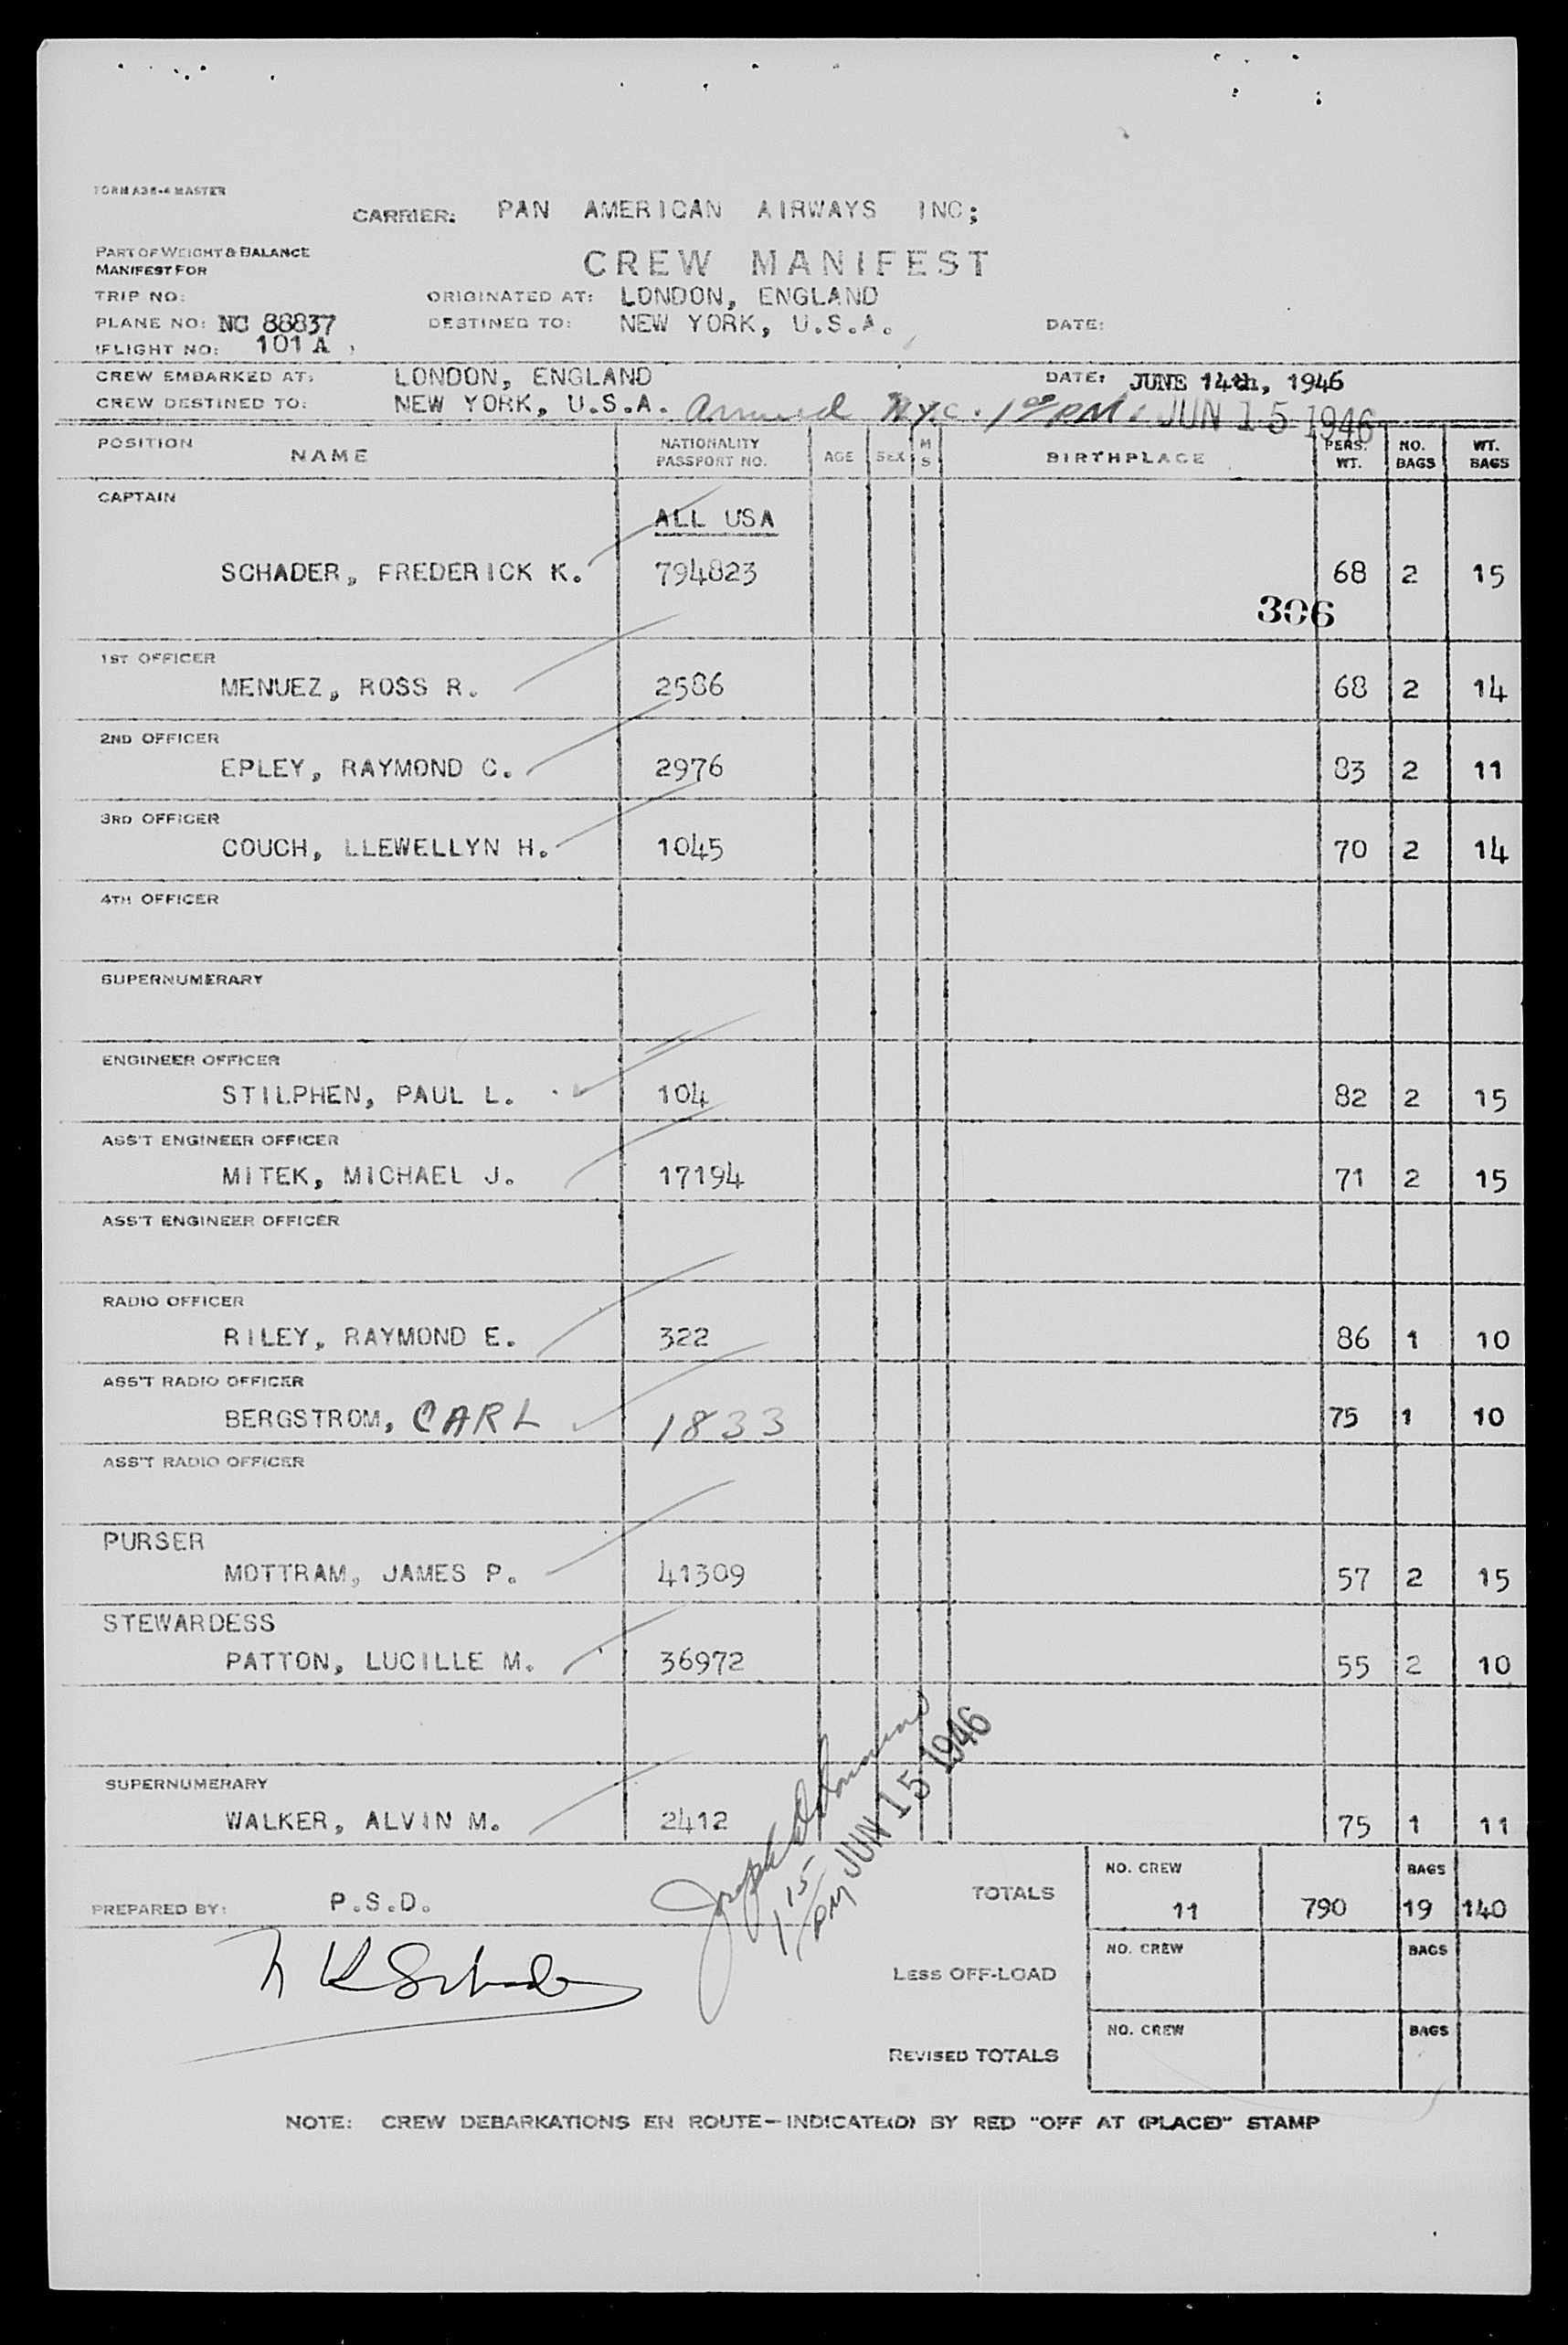 FORM A36-4 MASTER
CARRIER: PAN AMERICAN AIRWAYS INC;
PART OF WEIGHT & BALANCE
MANIFEST FOR
CREW MANIFEST
TRIP NO: ORIGINATED AT: LONDON, ENGLAND
PLANE NO: NC 88837 DESTINED TO: NEW YORK, U.S.A. DATE:
FLIGHT NO: 101 A
CREW EMBARKED AT: LONDON, ENGLAND DATE: JUNE 14th, 1946
CREW DESTINED TO: NEW YORK, U.S.A. Arrived N.Y.C. 1 00 PM. JUN 15 1946
POSITION NAME NATIONALITY PASSPORT NO. AGE SEX M S BIRTHPLACE PERS. WT. NO. BAGS WT. BAGS
CAPTAIN
ALL USA
SCHADER, FREDERICK K. 794823 68 2 15
306
1ST OFFICER
MENUEZ, ROSS R. 2586 68 2 14
2ND OFFICER
EPLEY, RAYMOND C. 2976 83 2 11
3RD OFFICER
COUCH, LLEWELLYN H. 1045 70 2 14
4TH OFFICER
SUPERNUMERARY
ENGINEER OFFICER
STILPHEN, PAUL L. 104 82 2 15
ASS'T ENGINEER OFFICER
MITEK, MICHAEL J. 17194 71 2 15
ASS'T ENGINEER OFFICER
RADIO OFFICER
RILEY, RAYMOND E. 322 86 1 10
ASS'T RADIO OFFICER
BERGSTROM, CARL 1833 75 1 10
ASS'T RADIO OFFICER
PURSER
MOTTRAM, JAMES P. 41309 57 2 15
STEWARDESS
PATTON, LUCILLE M. 36972 55 2 10
SUPERNUMERARY
WALKER, ALVIN M. 2412 75 1 11
Joseph
1 15 PM JUN 15 1946
PREPARED BY: P.S.D. TOTALS NO. CREW 11 790 BAGS 19 140
K Schader
LESS OFF-LOAD NO. CREW BAGS
REVISED TOTALS NO. CREW BAGS
NOTE: CREW DEBARKATIONS EN ROUTE—INDICATE(D) BY RED "OFF AT (PLACE)" STAMP